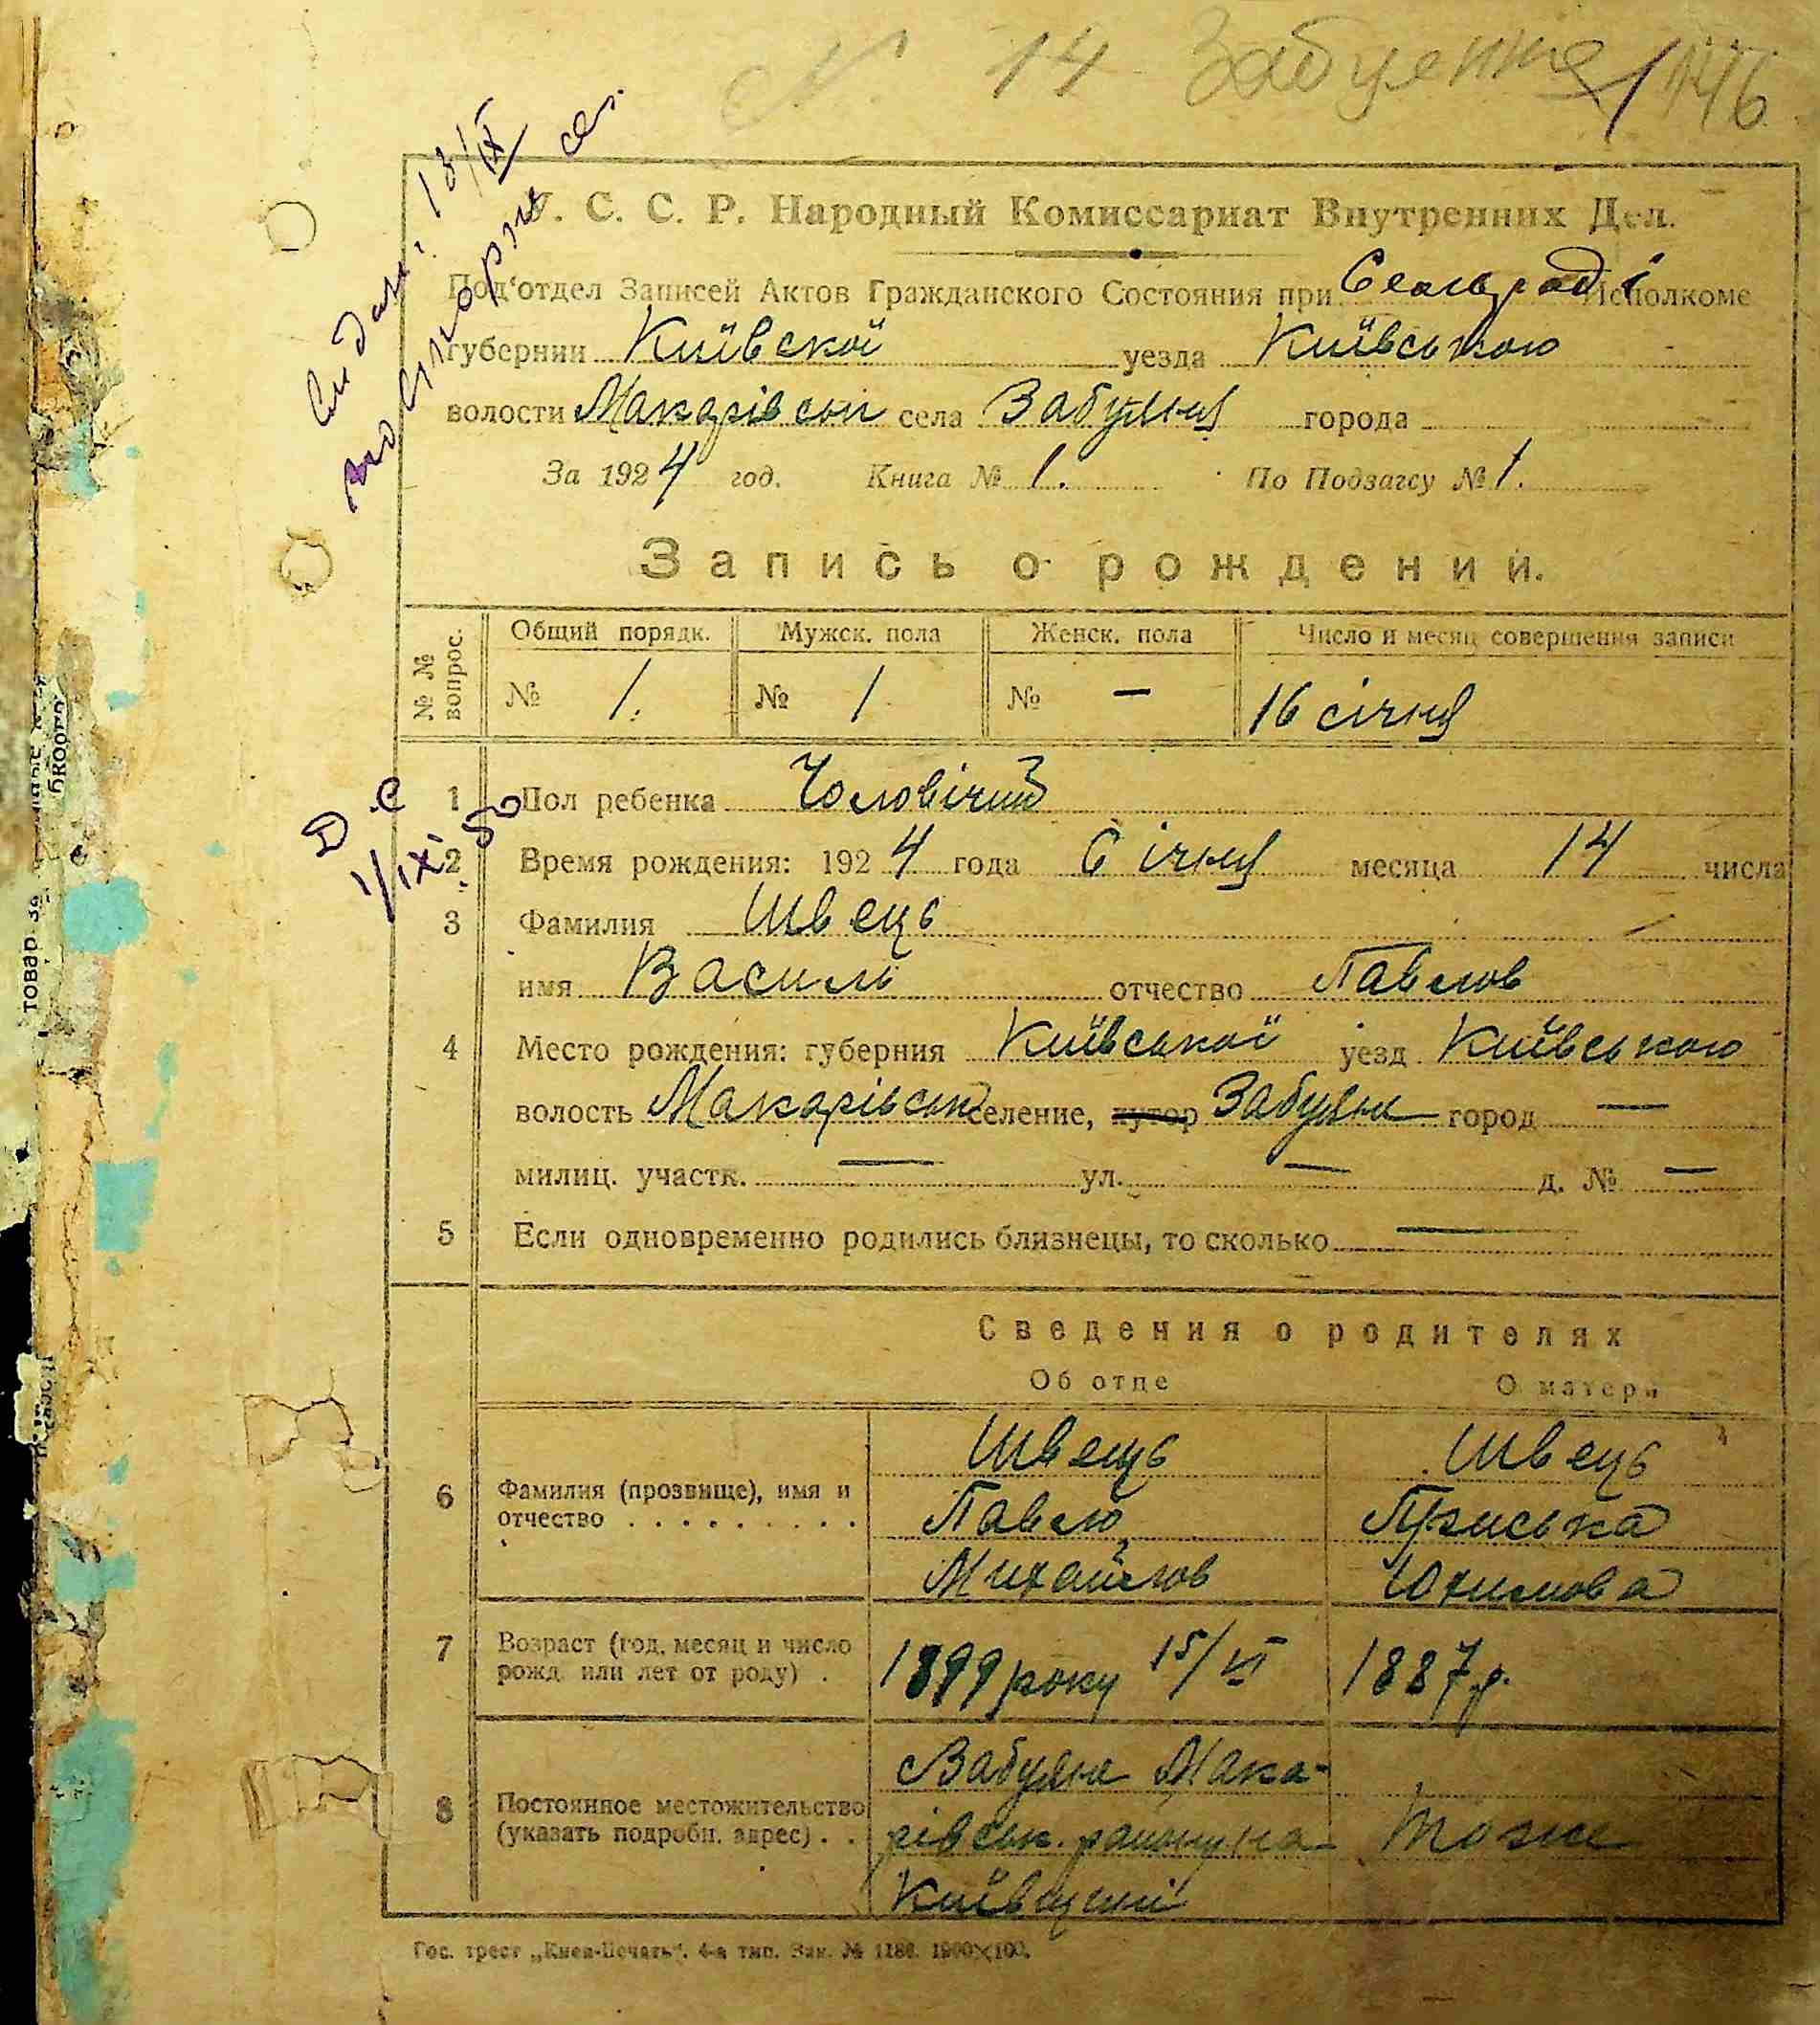 N 14 Забуення 1146
У. С. С. Р. Народный Комиссариат Внутренних Дел.
Под'отдел Записей Актов Гражданского Состояния при Сельраді Исполкоме
губернии Київской уезда Київського
волости Макарівськ села Забуяння города
За 1924 год. Книга № 1. По Подзагсу № 1.
Запись о рождении.
№ № вопрос. Общий порядк. Мужск. пола Женск. пола Число и месяц совершения записи
№ 1. № 1 № — 16 січня
Д. С 1/IX 50
1 Пол ребенка Чоловічий
2 Время рождения: 1924 года Січня месяца 14 числа
3 Фамилия Швець
имя Василь отчество Павлов
4 Место рождения: губерния Київської уезд Київського
волость Макарівськ селение, хутор Забуяння город —
милиц. участк. — ул. — д. № —
5 Если одновременно родились близнецы, то сколько —
Сведения о родителях
Об отце О матери
6 Фамилия (прозвище), имя и отчество
Швець Швець
Павло Приська
Михайлов Юхимова
7 Возраст (год, месяц и число рожд. или лет от роду) .
1899 року 15/VI 1887 р.
8 Постоянное местожительство (указать подробн. адрес) . .
Забуяння Мака-
рівськ. району на Тоже
Київщині
Гос. трест „Киев-Печать“. 4-я тип. Зак. № 1186. 1900×100.